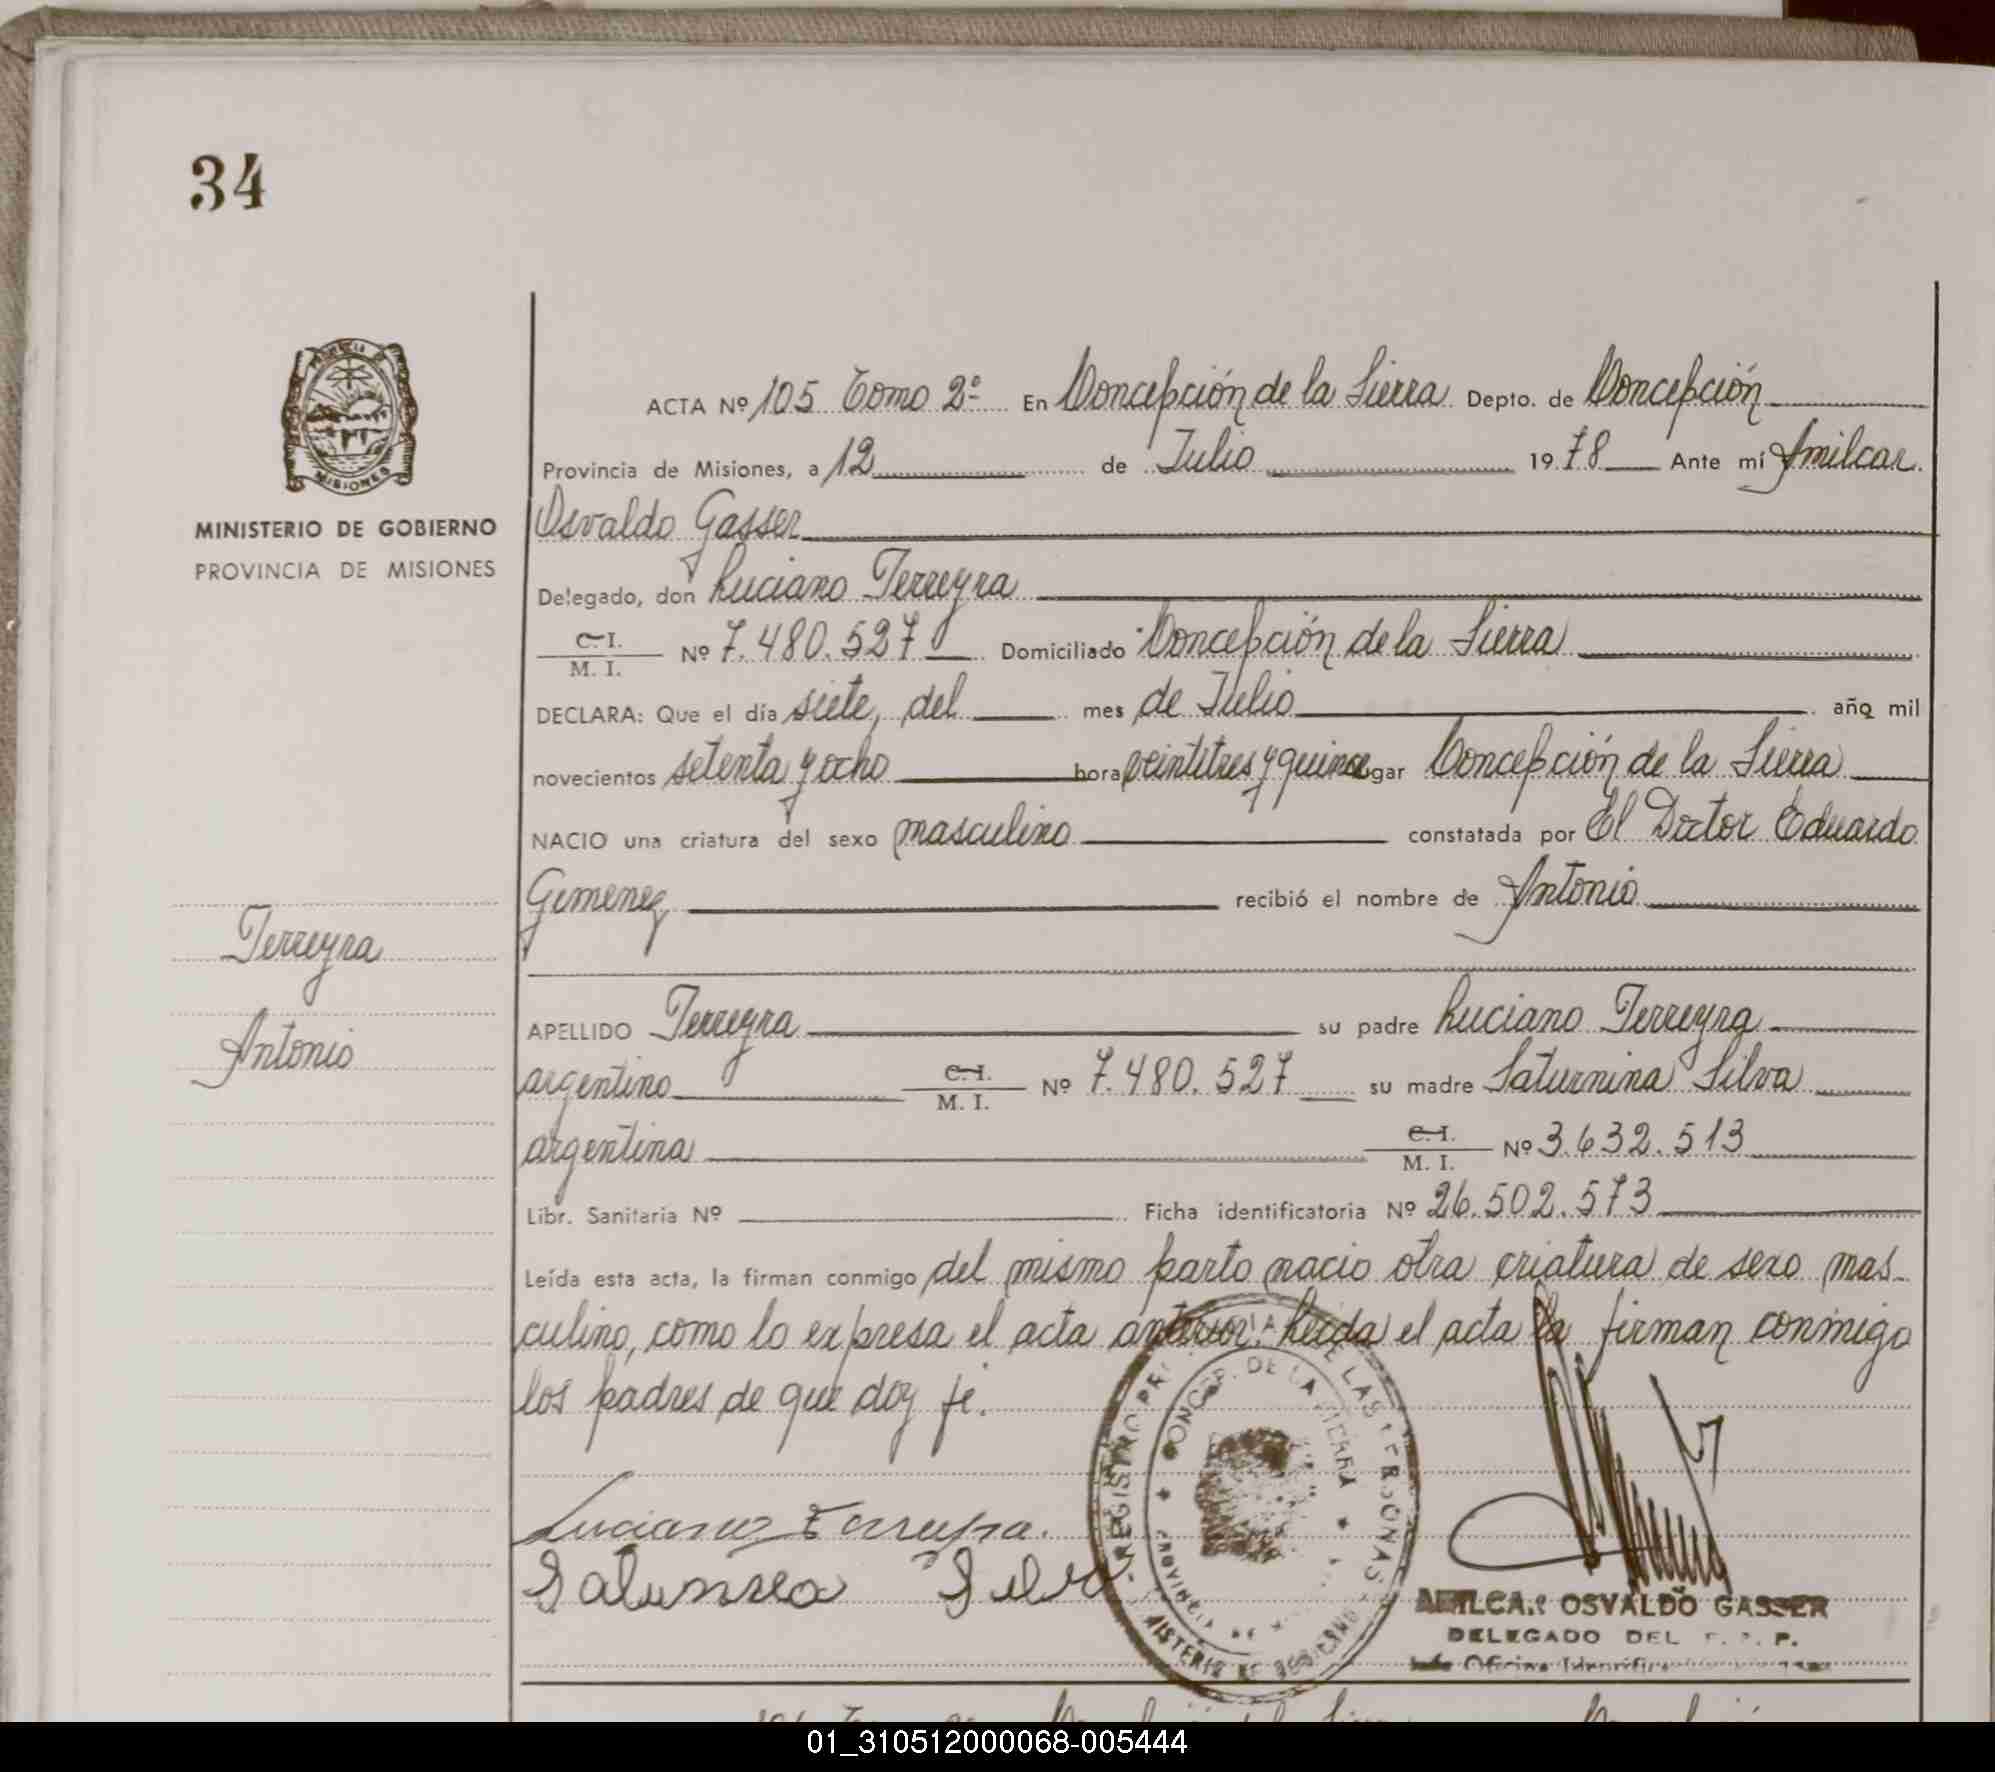 34
ACTA Nº 105 Tomo 2º En Concepción de la Sierra Depto. de Concepción
Provincia de Misiones, a 12 de Julio 1978 Ante mí Amilcar
Osvaldo Gasser
MINISTERIO DE GOBIERNO
PROVINCIA DE MISIONES
Delegado, don Luciano Terreyra
C. I. M. I. Nº 7.480.527 Domiciliado Concepción de la Sierra
DECLARA: Que el día siete, del mes de Julio año mil
novecientos setenta y ocho hora veintitres y quince lugar Concepción de la Sierra
NACIO una criatura del sexo masculino constatada por El Doctor Eduardo
Gimenez recibió el nombre de Antonio
Terreyra
Antonio
APELLIDO Terreyra su padre Luciano Terreyra
argentino C. I. M. I. Nº 7.480.527 su madre Saturnina Silva
argentina C. I. M. I. Nº 3.632.513
Libr. Sanitaria Nº Ficha identificatoria Nº 26.502.573
Leída esta acta, la firman conmigo del mismo parto nacio otra criatura de sexo mas-
culino, como lo expresa el acta anterior. Leida el acta la firman conmigo
los padres de que doy fé.
Luciano Terreyra.
Silva
REGISTRO DE LAS PERSONAS
CONCEP. DE LA SIERRA
PROVINCIA DE
MINISTERIO DE GOBIERNO
AMILCAR OSVALDO GASSER
DELEGADO DEL
01_310512000068-005444